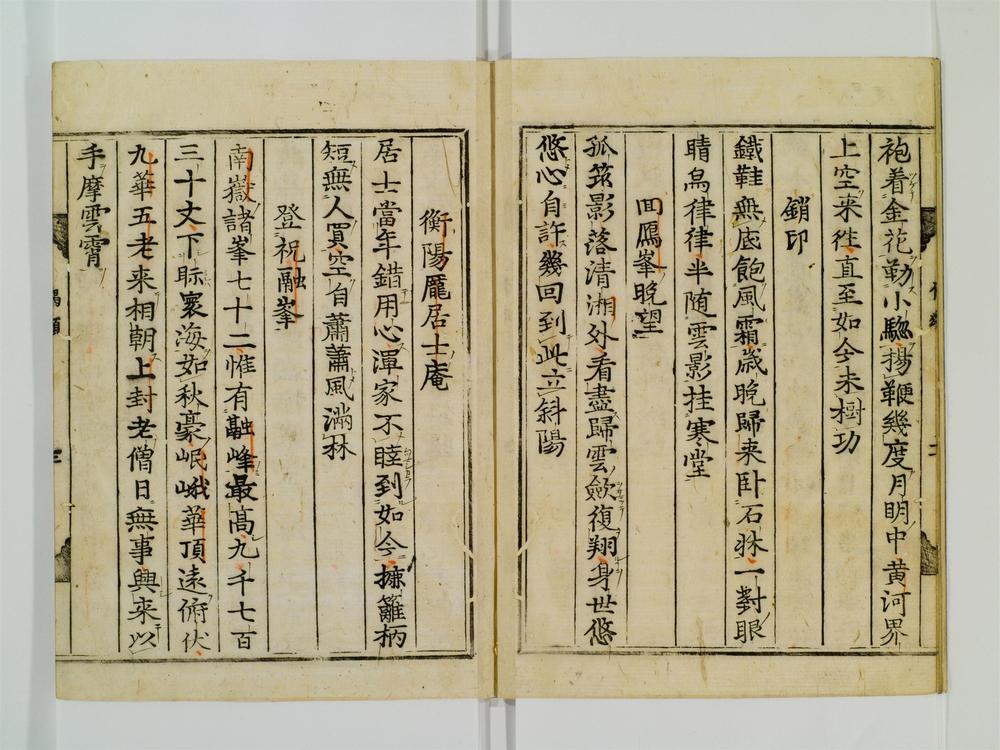 袍着金花勒小驄揚鞭幾度月明中黄河界
上空来徃直至如今未樹功
銷印
鐵鞋無底飽風霜歳晩歸来卧石牀一對眼
睛烏律律半随雲影挂寒堂
回鴈峯晩望
孤筇影落清湘外看盡歸雲歛復翔身世悠
悠心自許幾回到此立斜陽
衡陽龎居士庵
居士當年錯用心渾家不睦到如今㨿籬柄
短無人買空自蕭蕭風滿林
登祝融峯
南嶽諸峯七十二惟有融峰最髙九千七百
三十丈下眎寰海如秋豪岷峨華頂遠俯伏
九華五老来相朝上封老僧日無事興来以
手摩雲霄